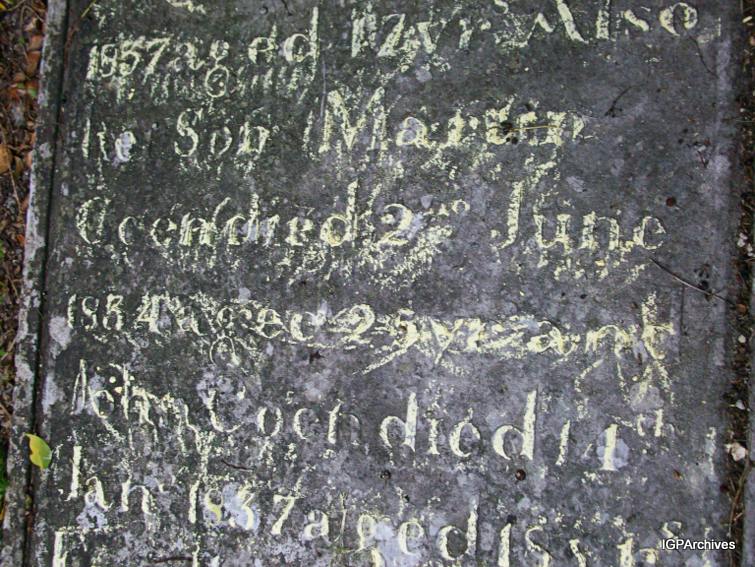 1857 aged 12 yrs Also
he Son Martin
Coen died 2nd June
1854 aged 25 yrs and
John Coen died 14th
Jan 1837 aged 18 yrs
IGPArchives